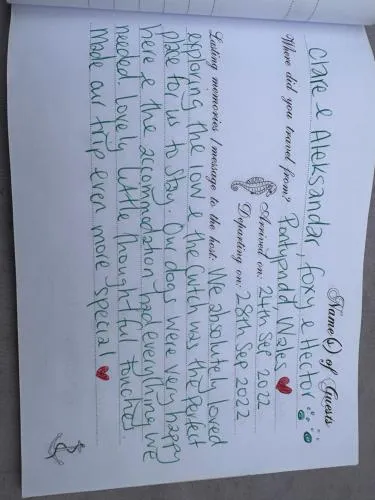 Name(s) of Guests
Clare & Aleksandar, foxy & Hector
Where did you travel from? Pontypridd Wales
Arrived on: 24th Sep 2022
Departing on: 28th Sep 2022
Lasting memories / message to the host: We absolutely loved
exploring the IOW & the Gwtch was the perfect
place for us to stay. Our dogs were very happy
here & the accommodation had everything we
needed. Lovely little thoughtful touches
Made our trip even more special